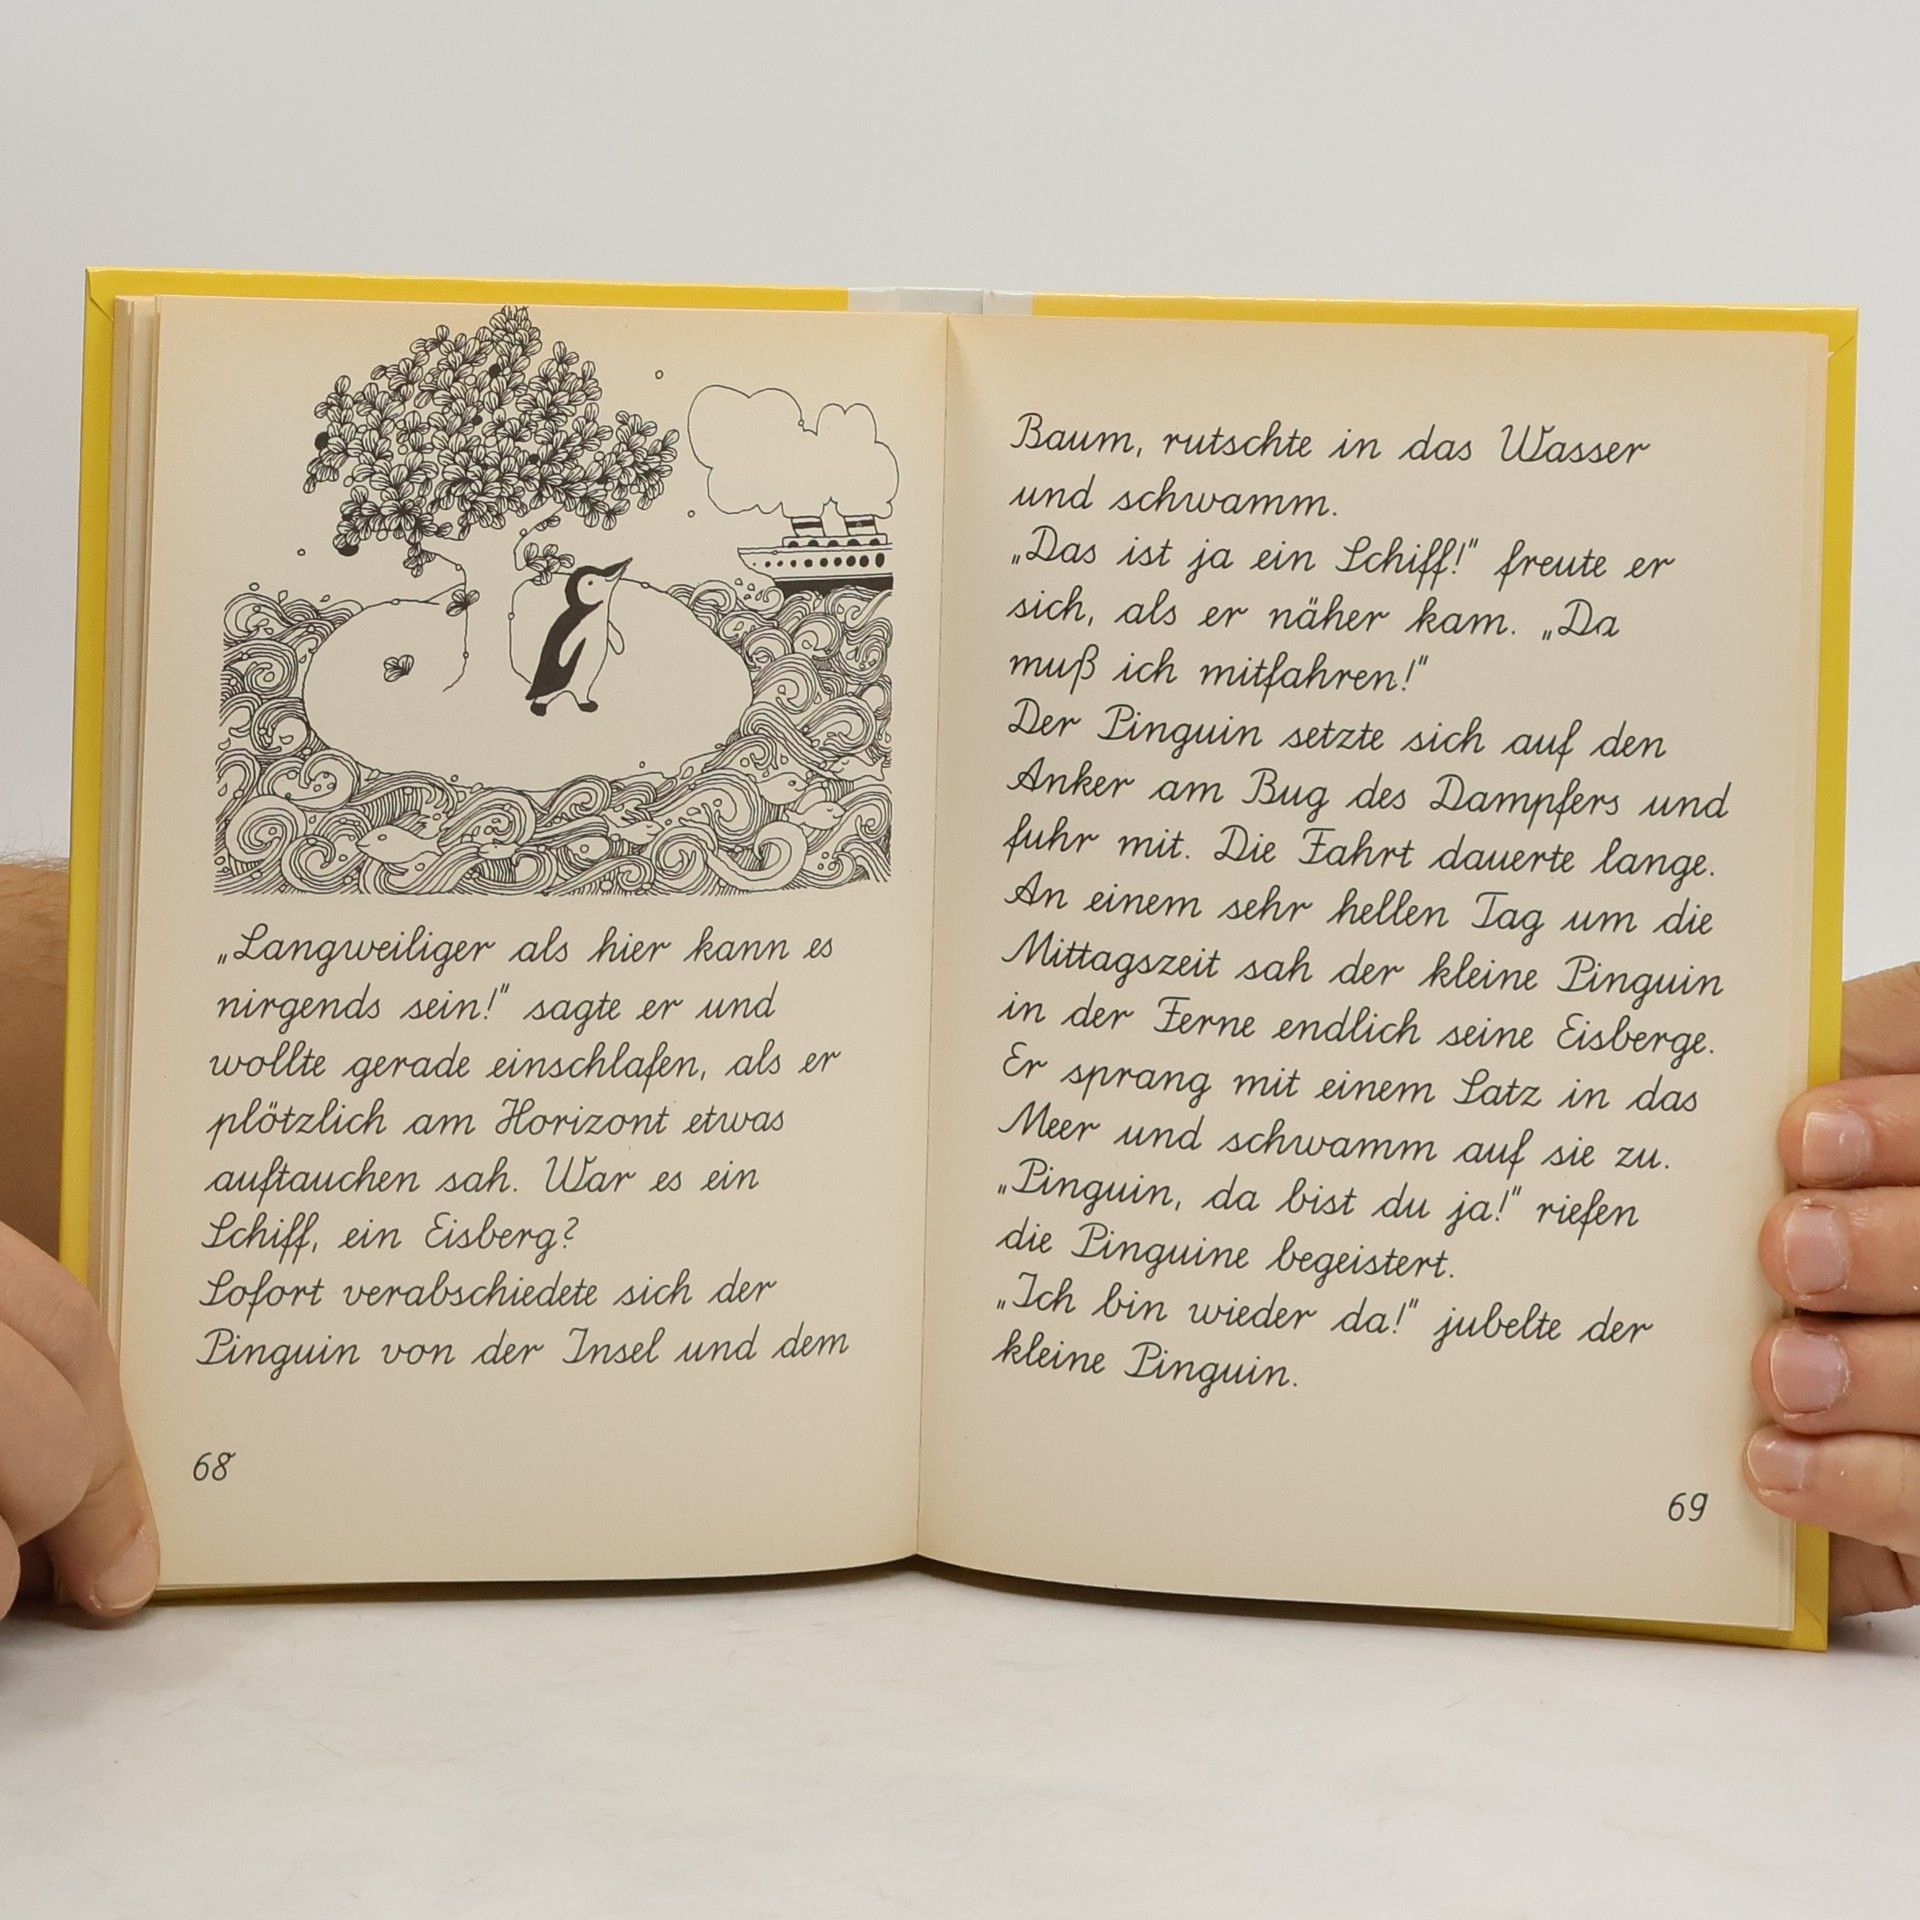 „Langweiliger als hier kann es
nirgends sein!" sagte er und
wollte gerade einschlafen, als er
plötzlich am Horizont etwas
auftauchen sah. War es ein
Schiff, ein Eisberg?
Sofort verabschiedete sich der
Pinguin von der Insel und dem
68
Baum, rutschte in das Wasser
und schwamm.
„Das ist ja ein Schiff!" freute er
sich, als er näher kam. „Da
muß ich mitfahren!"
Der Pinguin setzte sich auf den
Anker am Bug des Dampfers und
fuhr mit. Die Fahrt dauerte lange.
An einem sehr hellen Tag um die
Mittagszeit sah der kleine Pinguin
in der Ferne endlich seine Eisberge.
Er sprang mit einem Satz in das
Meer und schwamm auf sie zu.
„Pinguin, da bist du ja!" riefen
die Pinguine begeistert.
„Ich bin wieder da!" jubelte der
kleine Pinguin.
69